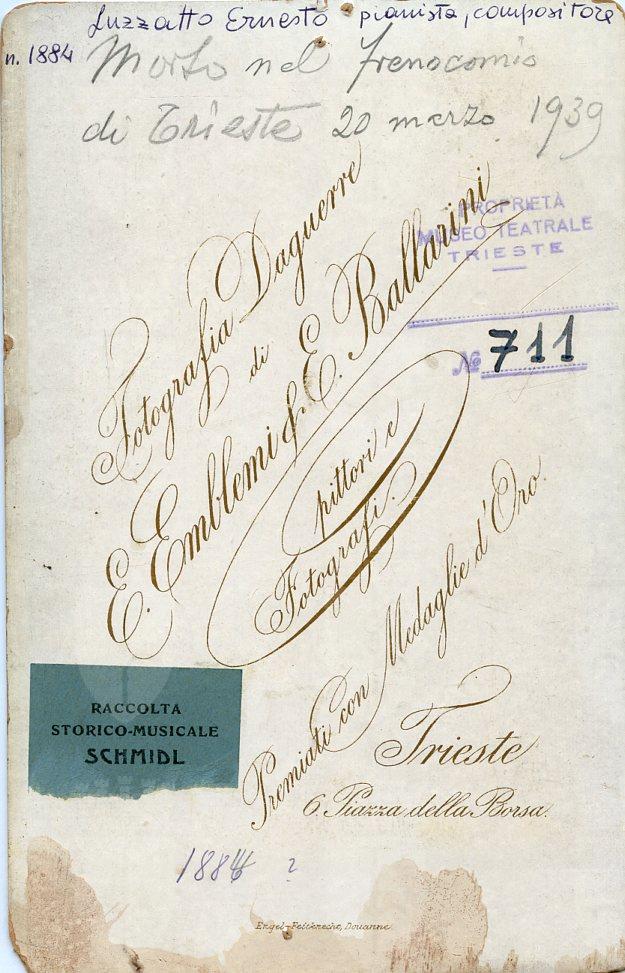 Luzzatto Ernesto pianista, compositore
n. 1884
Morto nel frenocomio
di Trieste 20 marzo 1939
PROPRIETÀ
MUSEO TEATRALE
TRIESTE
№ 711
Fotografia Daguerre
di
E. Emblemi & E. Ballarini
pittori e
Fotografi.
Premiati con Medaglie d'Oro.
Trieste
6. Piazza della Borsa.
RACCOLTA
STORICO-MUSICALE
SCHMIDL
1884 ?
Douanne.